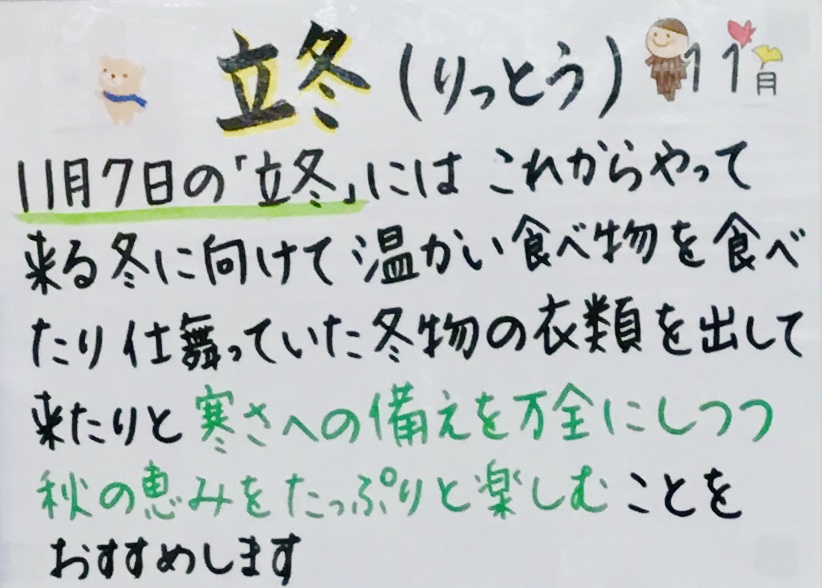 立冬(りっとう) 11月
11月7日の「立冬」には これからやって
来る冬に向けて温かい食べ物を食べ
たり仕舞っていた冬物の衣類を出して
来たりと寒さへの備えを万全にしつつ
秋の恵みをたっぷりと楽しむことを
おすすめします